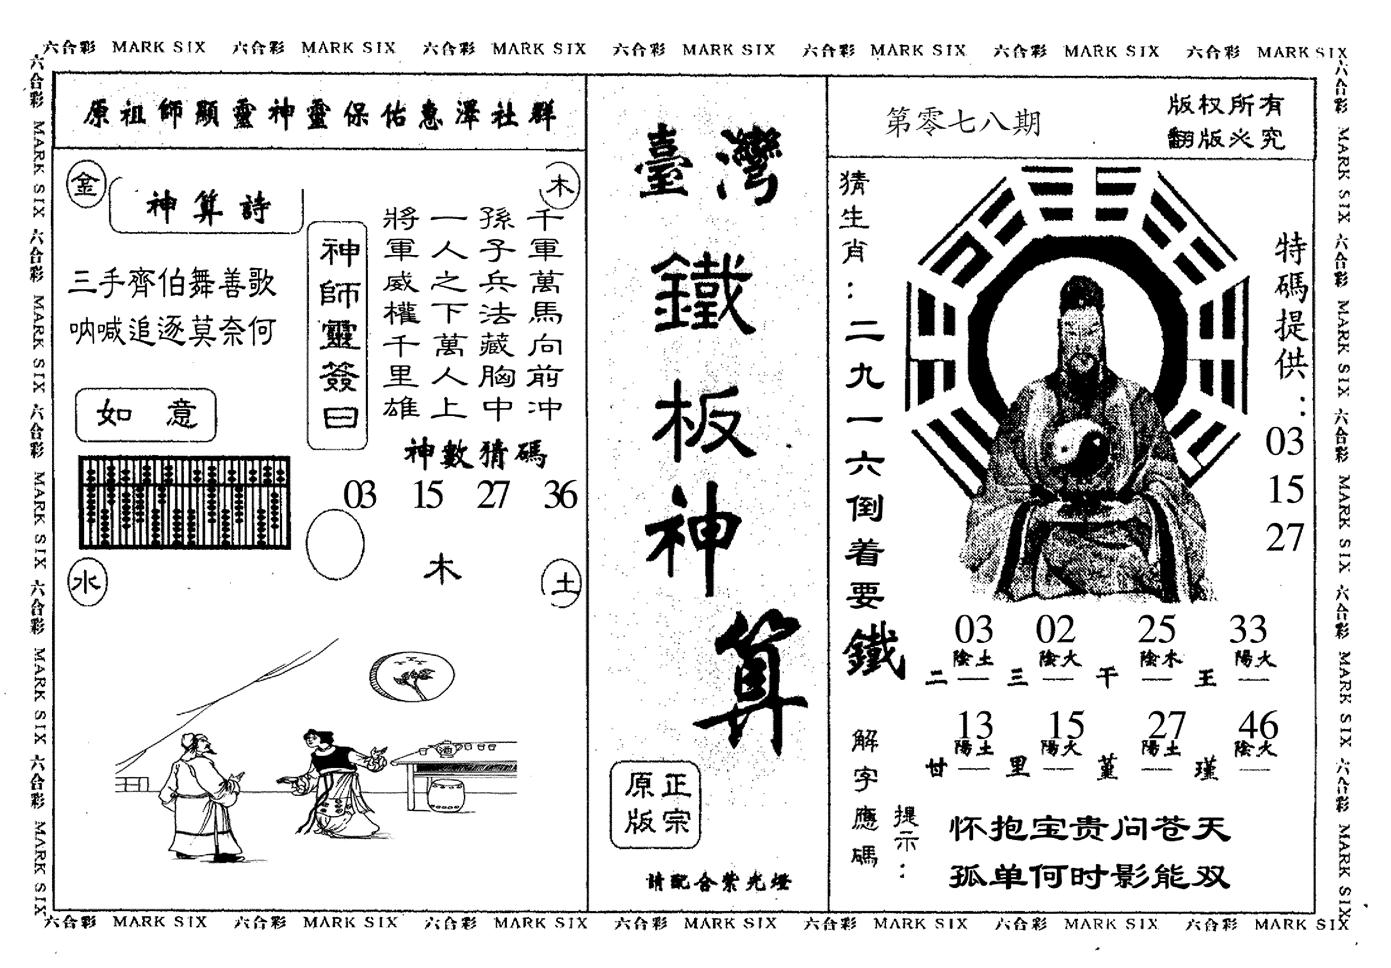 六合彩 MARK SIX 六合彩 MARK SIX 六合彩 MARK SIX 六合彩 MARK SIX 六合彩 MARK SIX 六合彩 MARK SIX 六合彩 MARK SIX
六合彩 MARK SIX 六合彩 MARK SIX 六合彩 MARK SIX 六合彩 MARK SIX 六合彩 MARK SIX
原祖師顯靈神靈保佑惠澤社群
金
木
神算詩
三手齊伯舞善歌
吶喊追逐莫奈何
神師靈簽曰
千軍萬馬向前冲
孫子兵法藏胸中
一人之下萬人上
將軍威權千里雄
如意
神數猜碼
03 15 27 36
木
水
土
臺灣
鐵板神算
正宗
原版
請配合紫光燈
第零七八期
版权所有
翻版必究
猜生肖：二九一六倒着要
特碼提供：
03
15
27
鐵
03 02 25 33
陰土 陰火 陰木 陽火
二一 三一 干一 王一
13 15 27 46
陽土 陽火 陽土 陰火
廿一 里一 堇一 瑾一
解字應碼
提示：
怀抱宝贵问苍天
孤单何时影能双
六合彩 MARK SIX 六合彩 MARK SIX 六合彩 MARK SIX 六合彩 MARK SIX 六合彩 MARK SIX
六合彩 MARK SIX 六合彩 MARK SIX 六合彩 MARK SIX 六合彩 MARK SIX 六合彩 MARK SIX 六合彩 MARK SIX 六合彩 MARK SIX